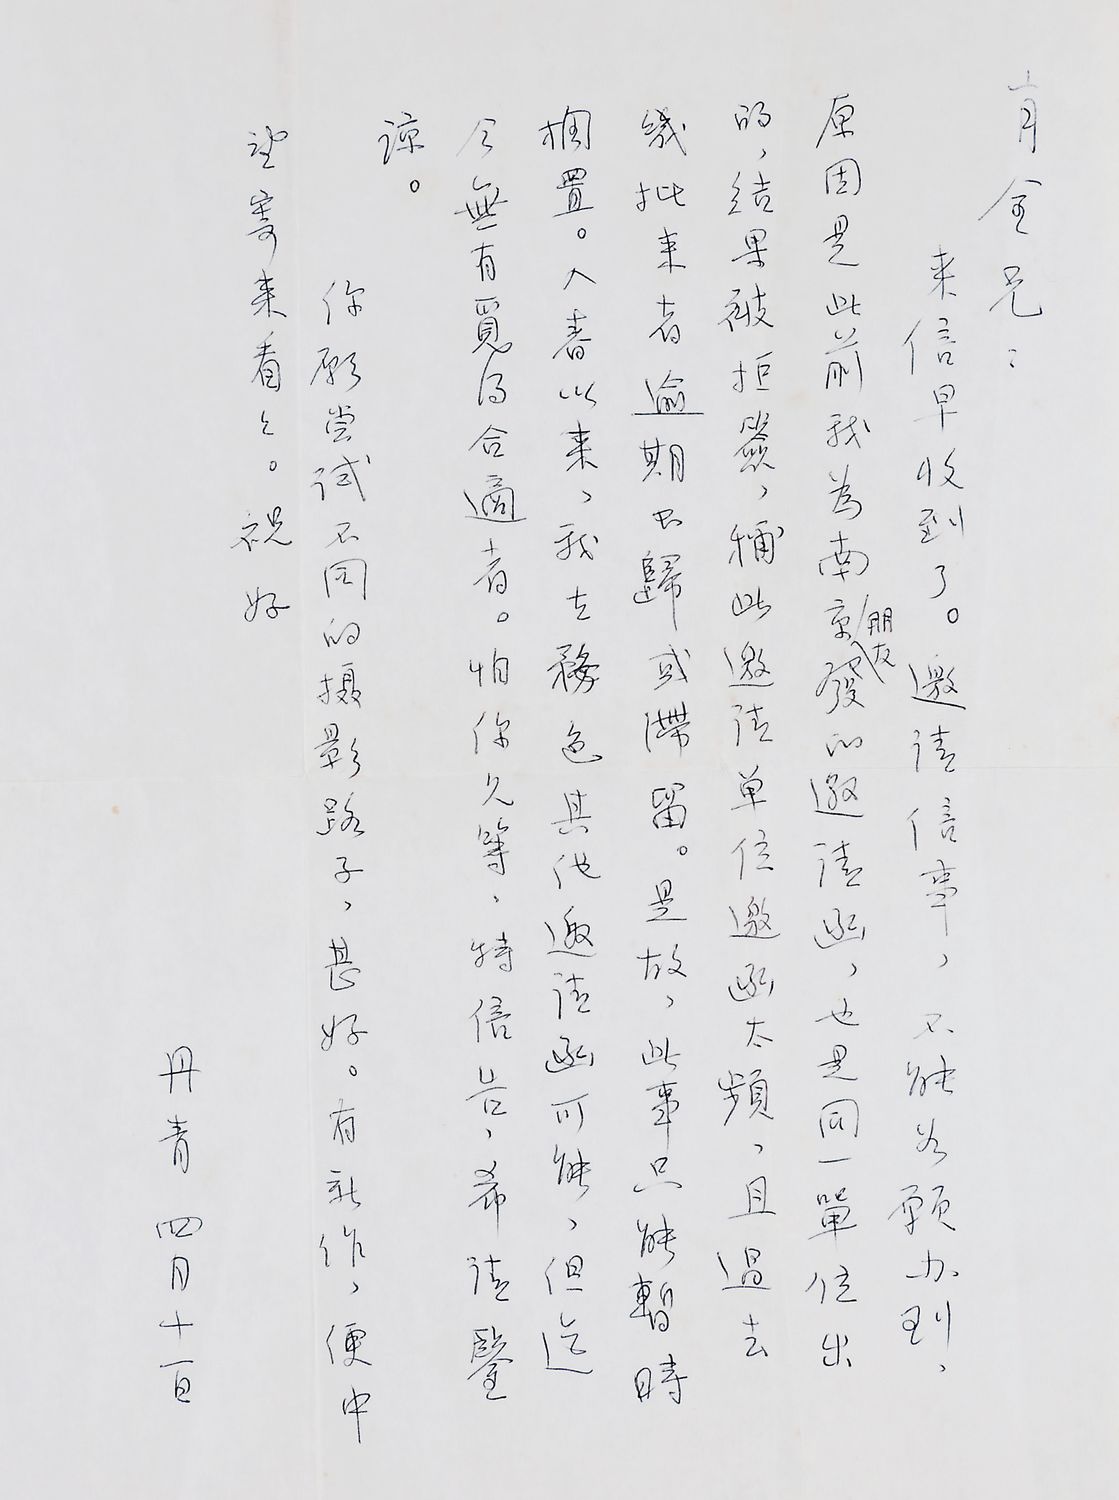 肖全兄：
来信早收到了。邀請信事，不能如願办到，
原因是此前我為南京朋友發的邀請函，也是同一單位出
的，结果被拒簽，稱此邀請单位邀函太頻，且過去
幾批来者逾期不歸或滯留。是故，此事只能暫時
擱置。入春以来，我在務色其他邀請函可能，但迄
今無有覓得合適者。怕你久等，特信告，希請鑒
諒。
你願尝试不同的摄影路子，甚好。有新作，便中
望寄来看々。祝好
丹青 四月十一日